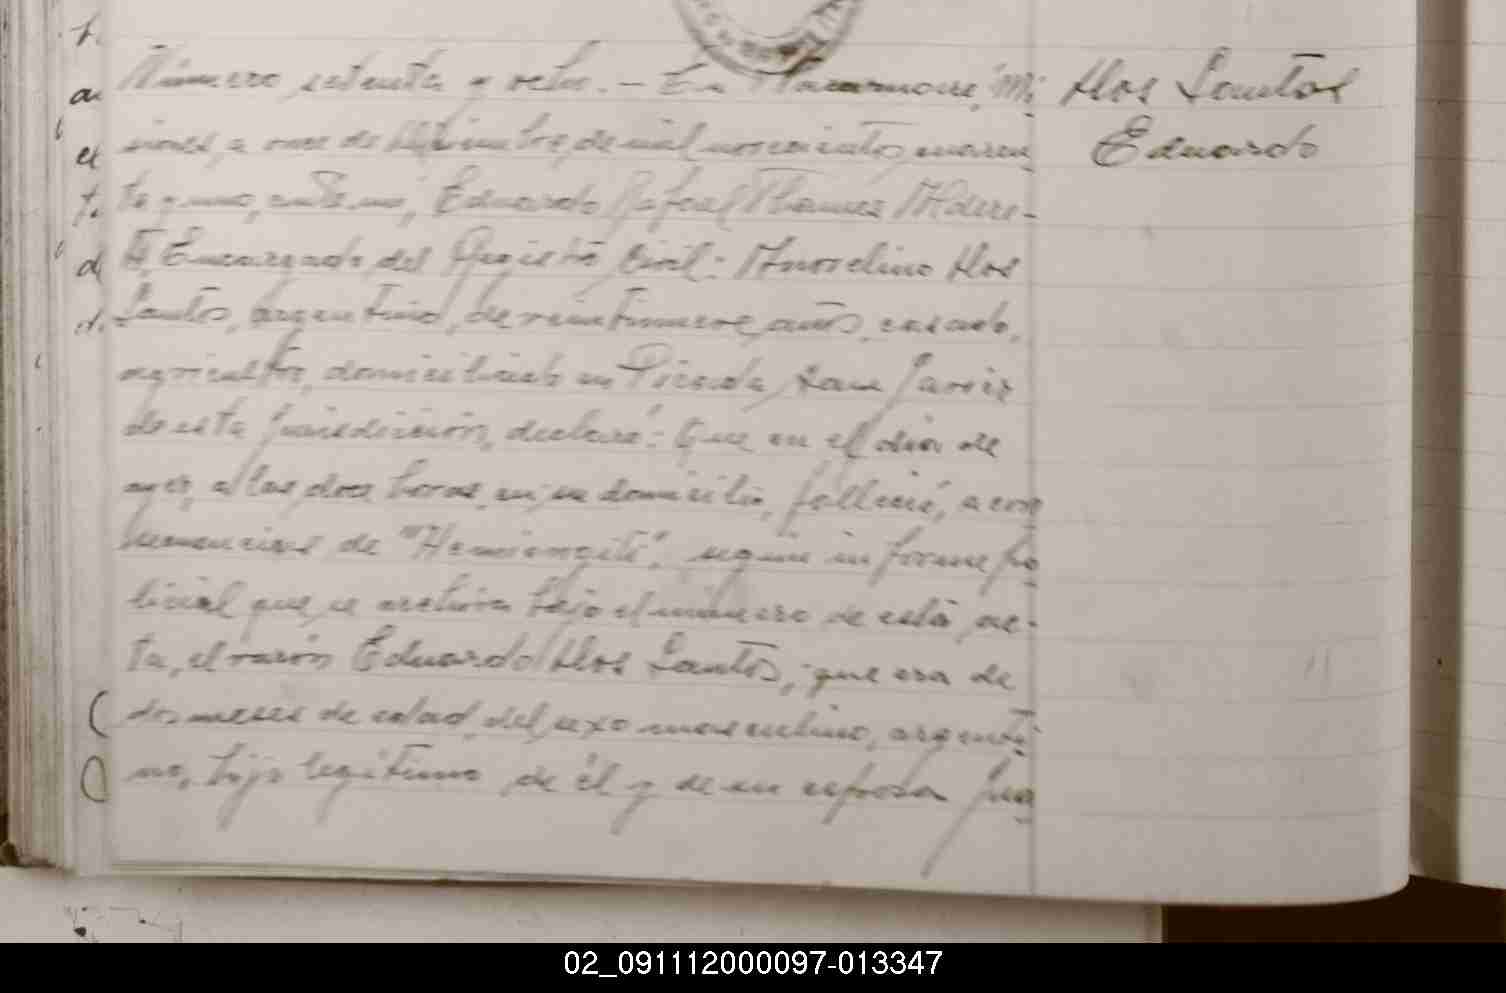 Número setenta y ocho. – En Mi
Dos Santos
Eduardo
siones, a once de Septiembre, de mil novecientos cuaren
ta y uno, ante mí, Eduardo Rafael
Encargado del Registro Civil: Dos
Santos, argentino, de veintinueve años, casado,
agricultor, domiciliado en Picada San Javier
de esta jurisdicción, declaró: Que en el día de
ayer, a las dos horas, en su domicilio, falleció, a con
secuencias de según informe po
licial que se archiva bajo el número de esta ac-
ta, el varón Eduardo Dos Santos, que era de
dos meses de edad, del sexo masculino, argenti
no, hijo legítimo de él y de su esposa Jua
02_091112000097-013347